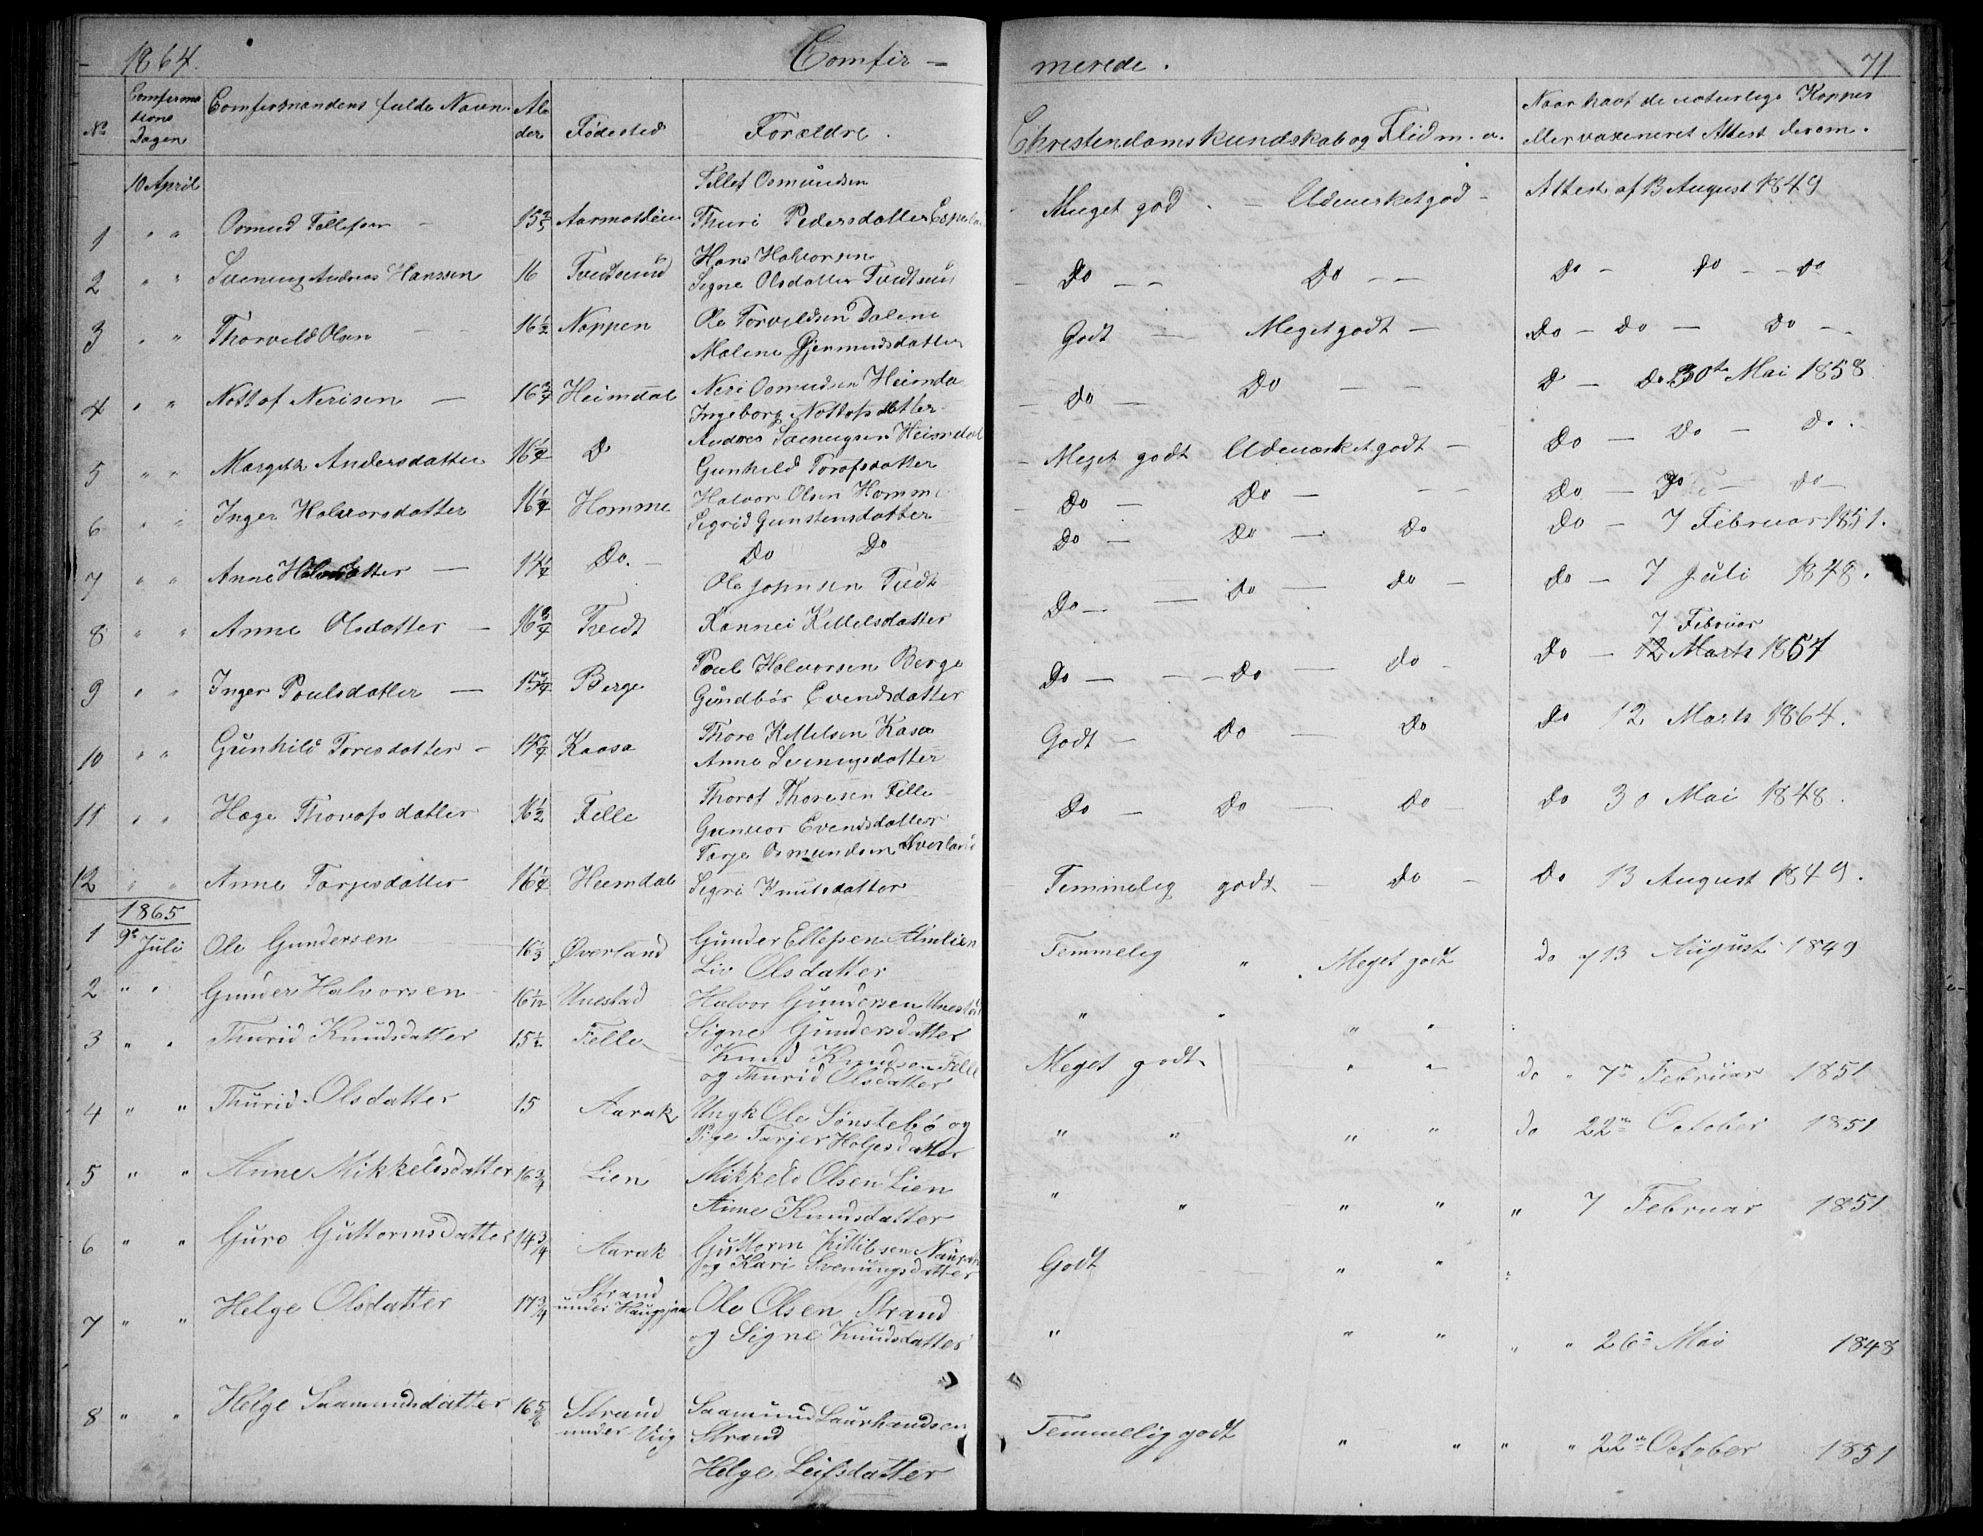 1864.
Comfir –
merede.
71
No
Comfirma
tions
Dagen
Comfirmandens fulde Navn.
Al-
der
Fødested
Forældre.
Christendoms kundskab og Flid m. v.
Naar havt de naturlige Kopper
eller vaxeneret Attest derom.
10 April
Tellef Osmundsen
1 " " Osmund Tellefsen – 15 Thuri Pedersdatter
Muget god – Udmerket god – Attest af 13 August 1849
Hans Halvorsen
2 " " Svenung Andreas Hanssen 16 Tvedtsund Signe Olsdatter Tvedtsund
Do – – Do – – Do – do – do
Ole Torveldsen Dalene
3 " " Thorveld Olsen – – 16 1/2 Noppen Malene Gjermundsdatter
Godt – Meget godt – Do – do – do –
Neri Osmundsen Heimdal
4 " " Nottof Nerisen – 16 3/4 Heimdal Ingeborg Nottofsdatter
– do – Do – – D – do 30te Mai 1858
Andres Svenugsen Heimdal
5 " " Margith Andersdatter 16 1/4 Do Gunhild Torofsdatter
– Meget godt Udmerket godt – Do – do – do.
Halvor Olsen Homme
6 " " Inger Halvorsdatter 16 1/4 Homme Sigrid Gunstensdatter
– Do – Do – – – Do – Do – do –
7 " " Anne – 14 1/4 Do. – Do Do
Do – Do – Do Do – 7 Februar 1851.
Ole Johnsen Tvedt
8 " " Anne Olsdatter – 16 3/4 Tvedt Rannei Kittelsdatter
Do – – Do – do – do – 7 Juli 1848.
Poul Halvorsen Berge
9 " " Inger Poulsdatter – 15 3/4 Berge Gundbør Evendsdatter
Do – – – Do – do – Do – 12 Marts 1864
7 Februar
Thore Kittelsen Kasa
10 " " Gunhild Toresdatter – 14 3/4 Kaasa Anne Svenugsdatter
Godt – Do – do do 12 Marts 1864.
Thorof Thoresen Felle
11 " " Hæge Thorofsdatter 16 1/2 Felle Gunvor Evendsdatter
Do – Do – Do – Do 30 Mai 1848.
Tarje Osmundsen Øverland
12 " " Anne Tarjesdatter 16 1/4 Heimdal Sigri Knutsdatter
Temmelig godt – do – Do 13 August 1849.
1865
1 9e Juli Ole Gundersen 16 1/3 Øverland Gunder Ellefsen Almlien
Liv Olsdatter
Temmelig " Meget godt do 13 August 1849
2 " " Gunder Halvorsen 16 1/12 Unestad Halvor Gundersen Unestad
Signe Gundersdatter
" " " "
3 " " Thurid Knudsdatter 15 1/2 Felle Knud Knudsen Felle
og Thurid Olsdatter
Meget godt " " do " 7de Februar 1851
4 " " Thurid Olsdatter 15 Aarak Ungk Ole Sønstebö og
Pige Tarjer Holjesdatter
" " " " do 22de October 1851
5 " " Anne Mikkelsdatter 16 3/4 Lien Mikkel Olsen Lien
Anne Knudsdatter
" " " " " 7 Februar 1851
6 " " Guro Guttormsdatter 14 3/4 Aarak Guttorm Kittilsen
og Kari Svenungsdatter
Godt " "
7 " " Helge Olsdatter 17 3/4 Strand
under Haugsjaa Ole Olsen Strand
og Signe Knudsdatter
" " " " " 26de Mai 1848
8 " " Helge Saamundsdatter 16 5/6 Strand
under Viig Saamund Laurhandsen
Strand
Helge Leifsdatter
Temmelig godt " " " " 22de October 1851